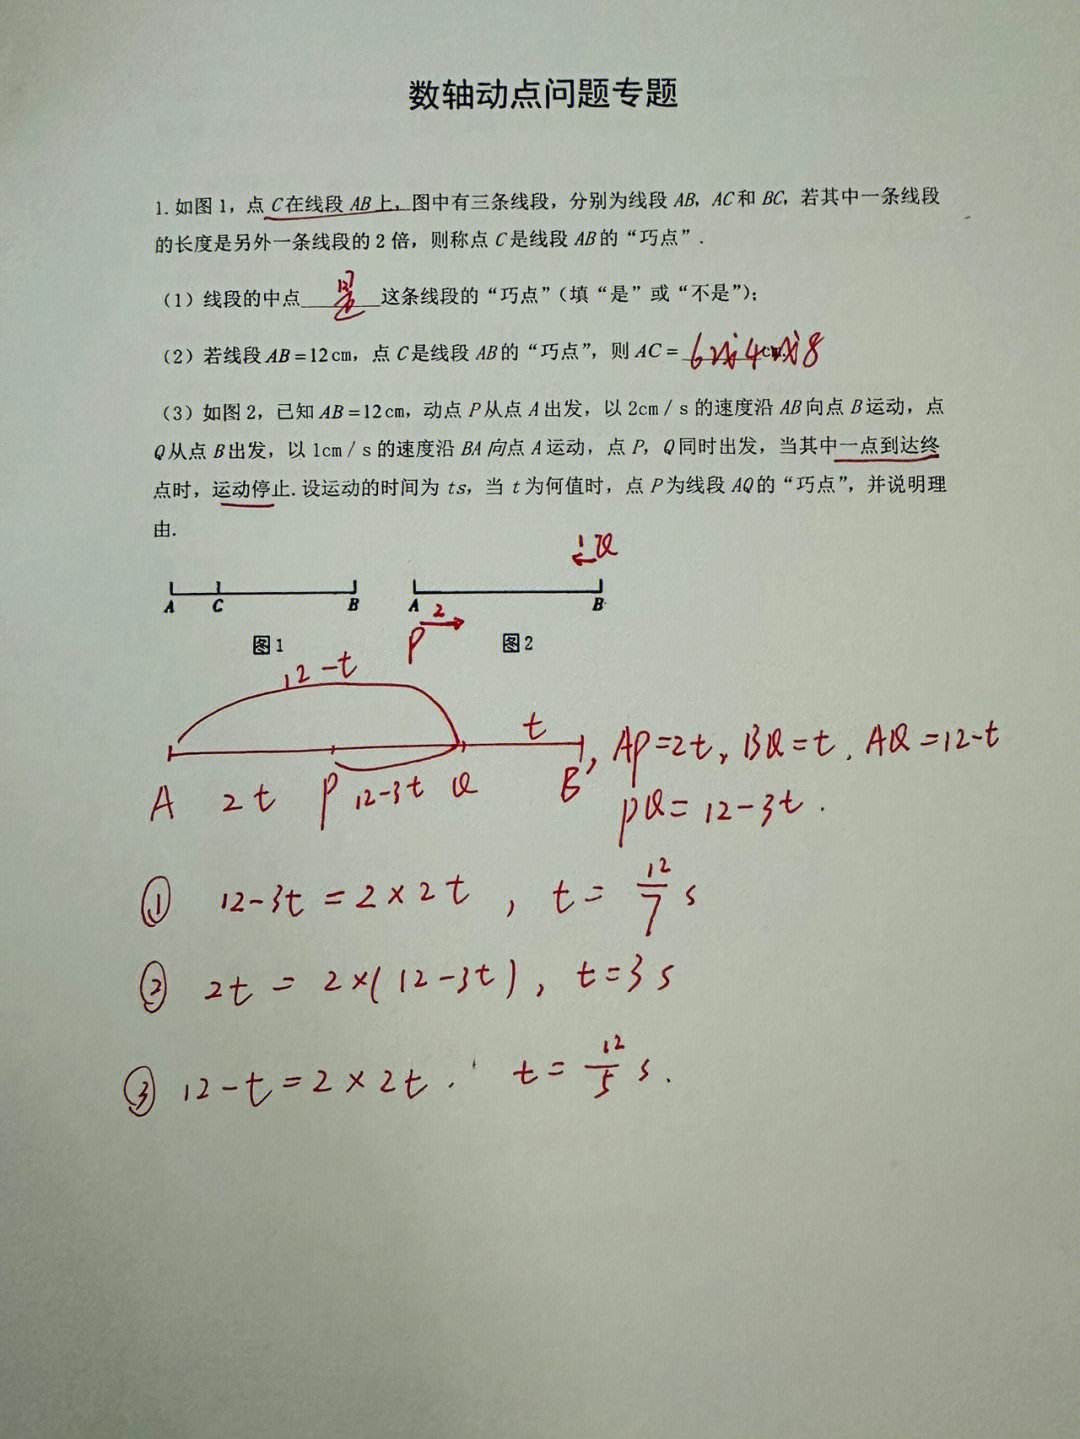 数轴动点问题专题
1.如图1，点C在线段AB上，图中有三条线段，分别为线段AB，AC和BC，若其中一条线段
的长度是另外一条线段的2倍，则称点C是线段AB的“巧点”.
（1）线段的中点 是 这条线段的“巧点”（填“是”或“不是”）；
（2）若线段AB=12cm，点C是线段AB的“巧点”，则AC= 6或4或8 cm.
（3）如图2，已知AB=12cm，动点P从点A出发，以2cm/s的速度沿AB向点B运动，点
Q从点B出发，以1cm/s的速度沿BA向点A运动，点P，Q同时出发，当其中一点到达终
点时，运动停止.设运动的时间为ts，当t为何值时，点P为线段AQ的“巧点”，并说明理
由.
1 Q
A C B A 2 B
P
图1 图2
12-t
t
A 2t P 12-3t Q B
AP=2t, BQ=t, AQ=12-t
PQ=12-3t.
① 12-3t=2×2t, t=12/7 s
② 2t=2×(12-3t), t=3s
③ 12-t=2×2t. t=12/5 s.